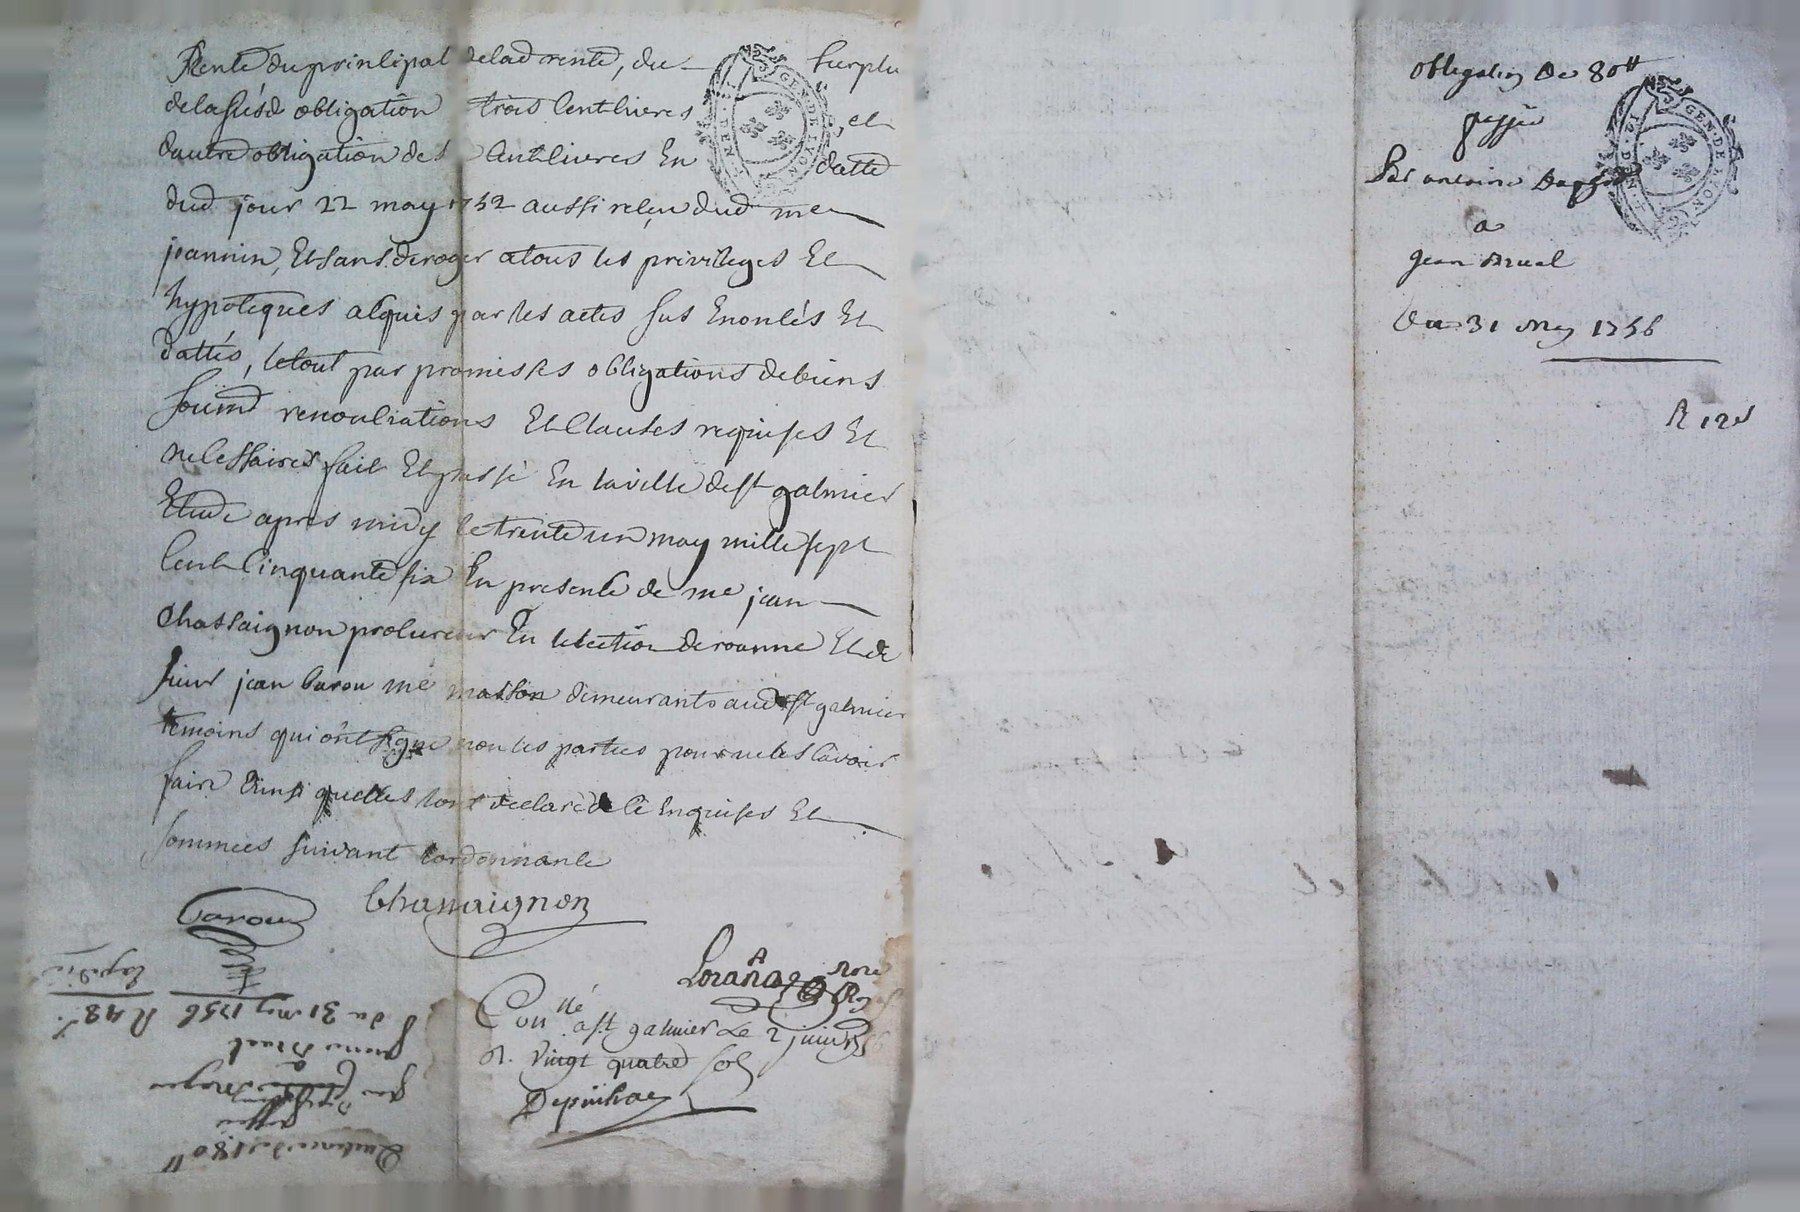 Rente du principal de lad rente, du surplu
de la susd obligation trois cent livres, et
dautre obligation de cent livres en datte
dud jour 22 may 1752 aussi reçu dud me
joannin, Et sans deroger a tous les privileges Et
hypoteques acquis par les actes sus Enoncés Et
dattés, le tout par promesses obligations de biens
soumd renonciations Et Clauses requises Et
necessaires fait Et passé En la ville de st galmier
Etude apres midy le trente un may mille sept
Cent Cinquante six En presence de me jean
Chassaignon procureur En lelection de roanne Et de
sieur jean barou me masson demeurants aud st galmier
temoins qui ont signé non les parties pour ne les savoir
faire Ainsi quelles lont declaré de ce Enquises Et
sommées suivant lordonnance
Barou
Chassaignon
Conllé a st galmier Le 2 juin
R. vingt quatre sols
Quittance de 180 tt
passée
a
du 31 may 1756
R 48 s
GEN. DE LYON
obligation de 80 tt
passée
Par antoine
a
jean Bruel
Du 31 may 1756
R 12 s
GEN. DE LYON